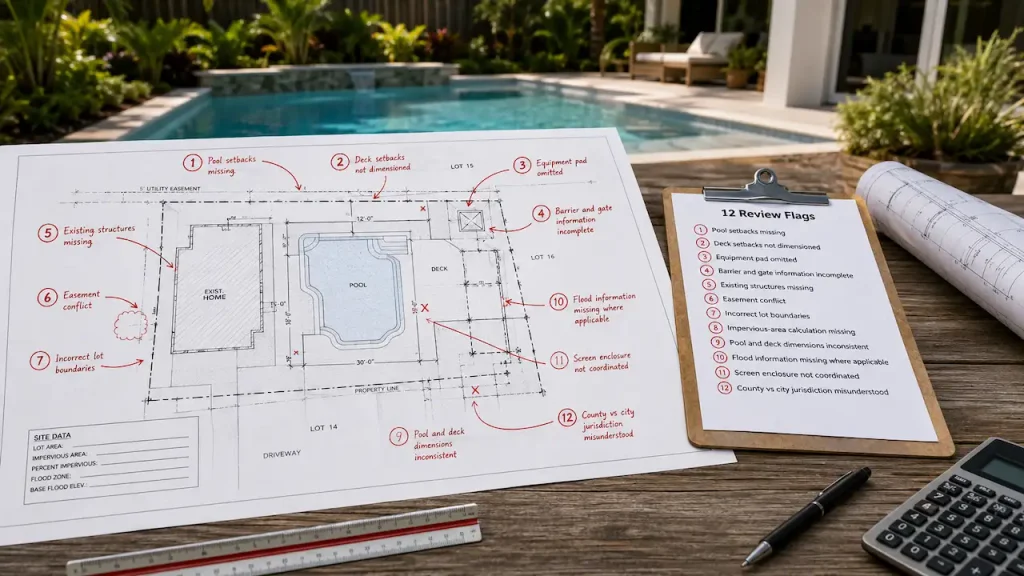 1 Pool setbacks
missing
2 Deck setbacks
not dimensioned
LOT 15
3 Equipment pad
omitted
UTILITY EASEMENT
12'-0"
4 Barrier and gate
information
incomplete
5 Existing structures
missing
LOT 16
EXIST.
HOME
POOL
DECK
6 Easement
conflict
10 Flood information
missing where
applicable
7 Incorrect lot
boundaries
30'-0"
11 Screen enclosure
not coordinated
PROPERTY LINE
LOT 14
9 Pool and deck
dimensions
inconsistent
12 County vs city
jurisdiction
misunderstood
DRIVEWAY
SITE DATA
LOT AREA:
IMPERVIOUS AREA:
PERCENT IMPERVIOUS:
FLOOD ZONE:
BASE FLOOD ELEV.:
12 Review Flags
1 Pool setbacks missing
2 Deck setbacks not dimensioned
3 Equipment pad omitted
4 Barrier and gate information incomplete
5 Existing structures missing
6 Easement conflict
7 Incorrect lot boundaries
8 Impervious-area calculation missing
9 Pool and deck dimensions inconsistent
10 Flood information missing where applicable
11 Screen enclosure not coordinated
12 County vs city jurisdiction misunderstood